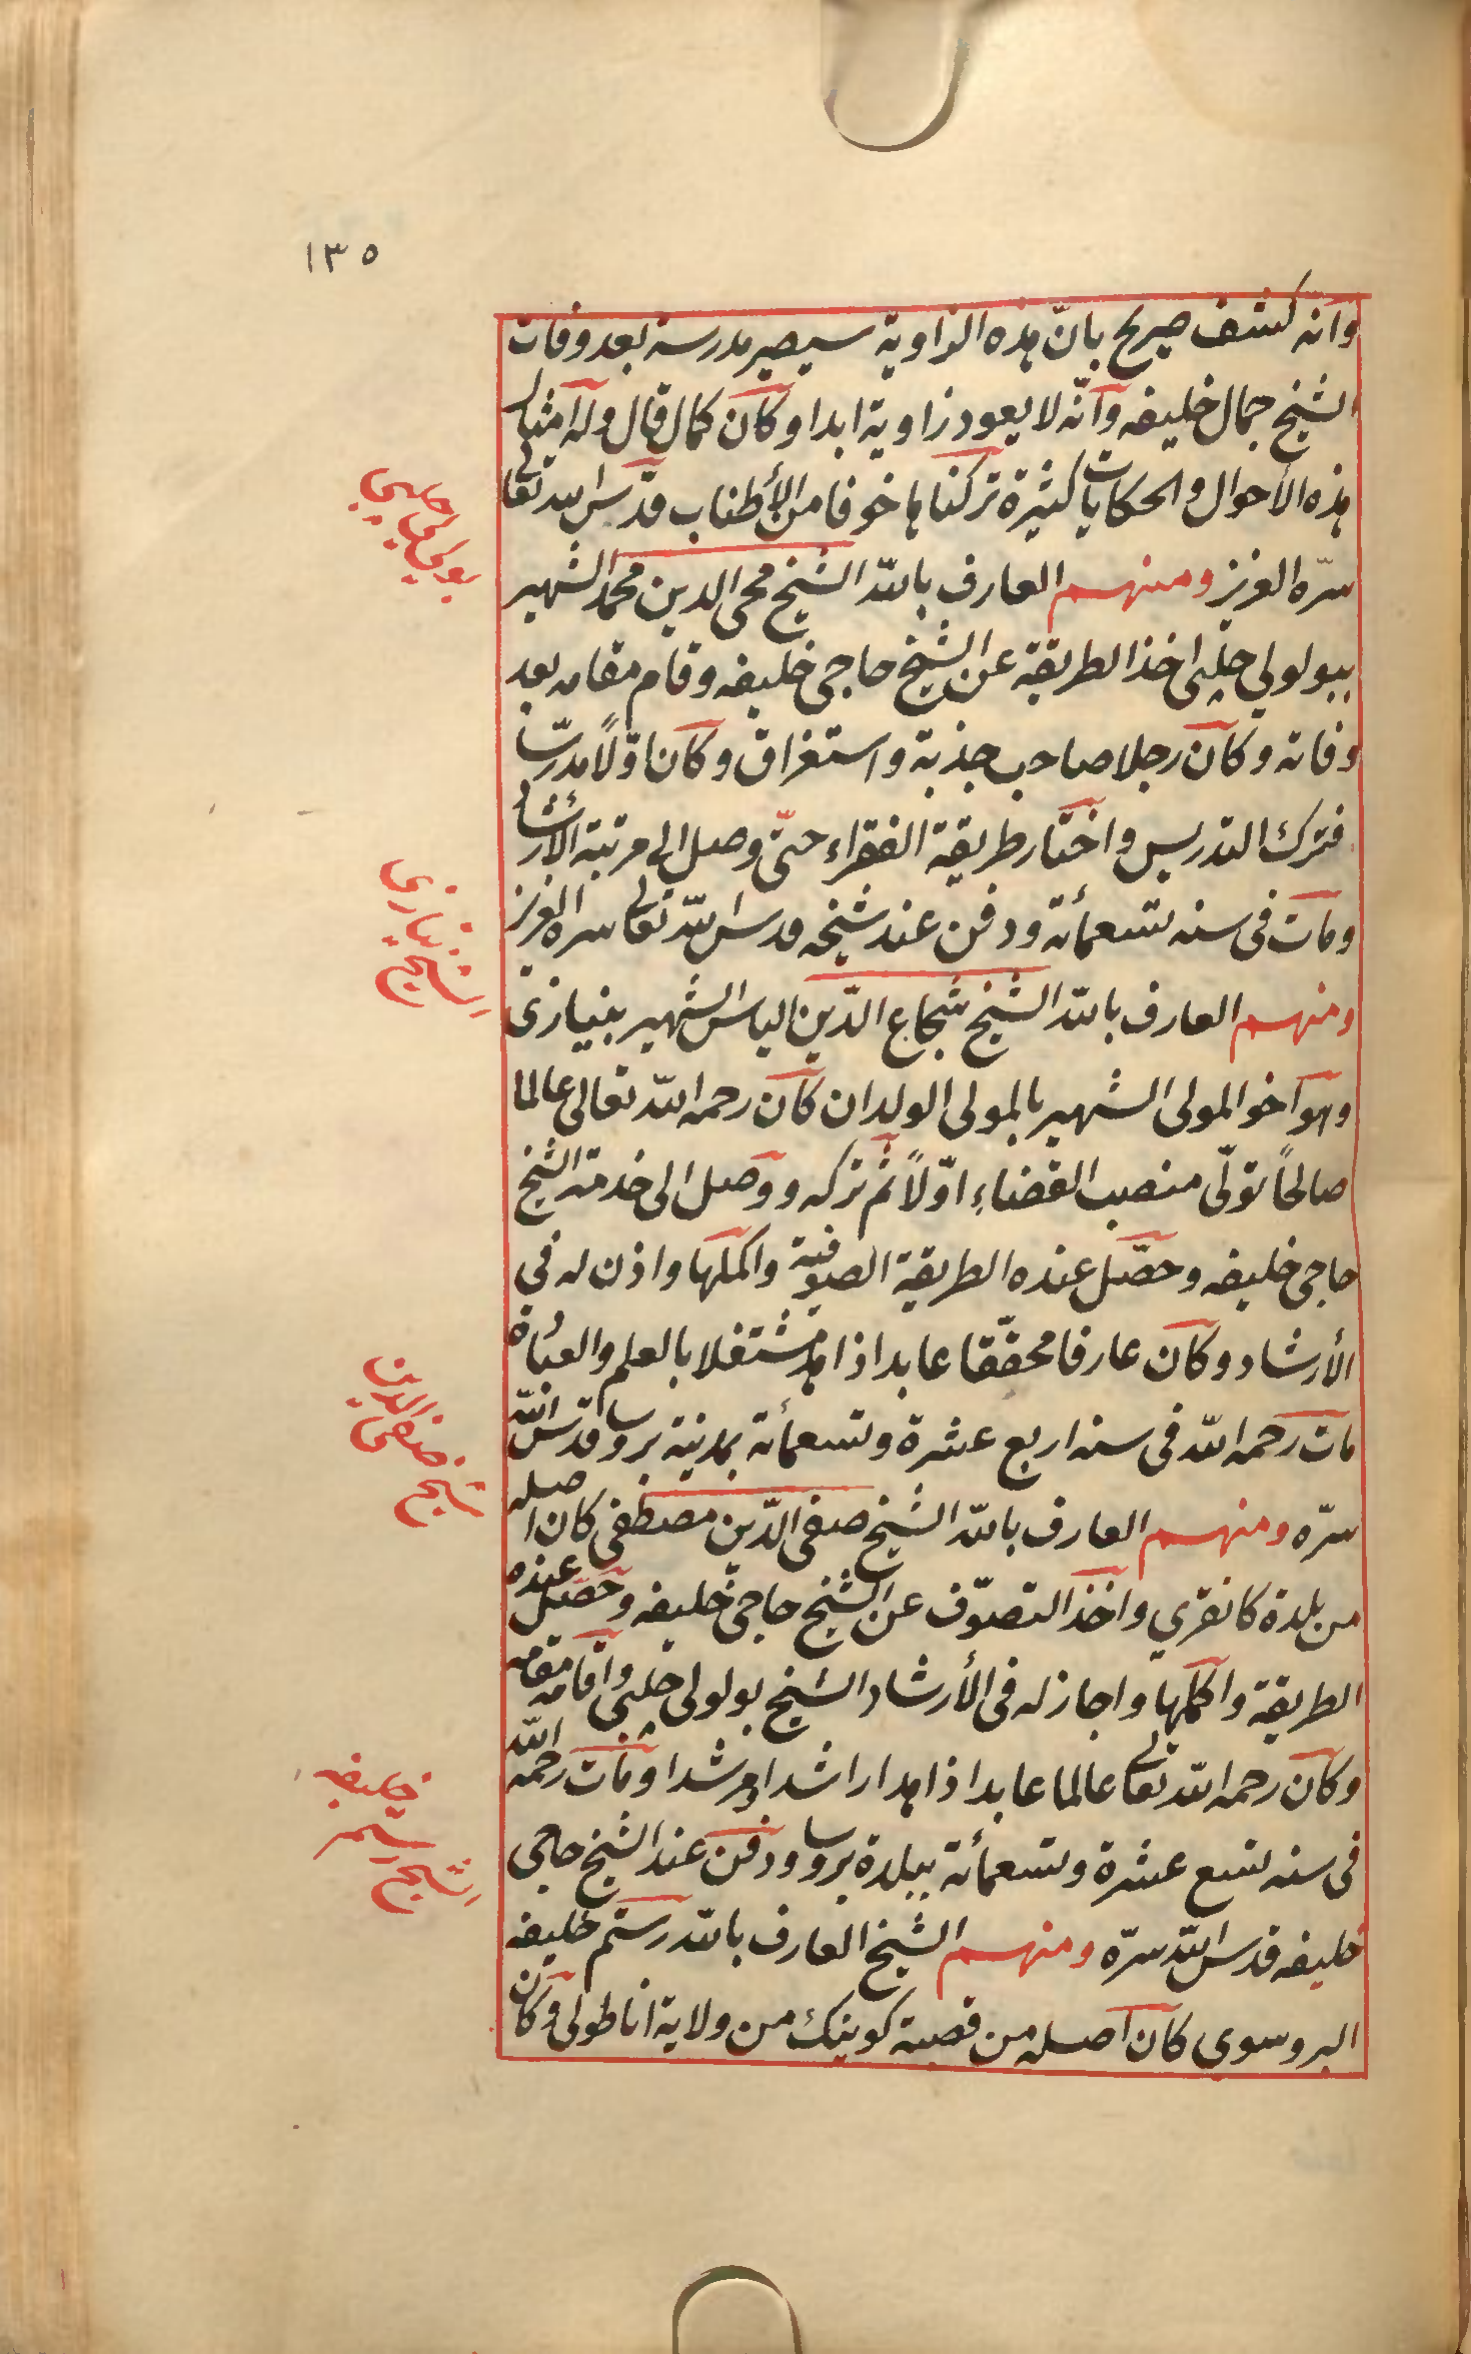 ١٣٥
وانه كشف صريح بانّ هذه الزاوية سيصير مدرسة بعد وفات
الشيخ جمال خليفه وانّه لا يعود زاوية ابدا وكان كمال قال وله امثال
هذه الأحوال والحكايات كثيرة تركناها خوفا من الأطناب قدّس الله تعالى
سرّه العزيز ومنهم العارف بالله الشيخ محى الدين محمد الشهير
ببولولي چلبى اخذ الطريقة عن الشيخ حاجى خليفه وقام مقامه بعد
وفاته وكان رجلا صاحب جذبة واستغراق وكان اوّلاً مدرّسا
فترك التدريس واختار طريقة الفقراء حتّى وصل الى مرتبة الأرشاد
ومات فى سنه تسعمأئة ودفن عند شيخه قدس الله تعالى سره العزيز
ومنهم العارف بالله الشيخ شجاع الدّين الياس الشهير بنيازى
وهو اخو المولى الشهير بالمولى الولدان كان رحمه الله تعالى عالما
صالحاً تولّى منصب القضاءِ اوّلاً ثم تركه ووصل الى خدمة الشيخ
حاجى خليفه وحصّل عنده الطريقة الصوفية واكملها واذن له فى
الأرشاد وكان عارفا محقّقا عابدا زاهدا مشتغلا بالعلم والعبادة
مات رحمه الله فى سنه اربع عشرة وتسعمأئة بمدينة بروسا قدّس الله
سرّه ومنهم العارف بالله الشيخ صفى الدّين مصطفى كان اصله
من بلدة كانقري واخذ التصوّف عن الشيخ حاجى خليفه وحصّل عنده
الطريقة واكملها واجاز له فى الأرشاد الشيخ بولولى چلبى واقامه مقامه
وكان رحمه الله تعالى عالما عابدا زاهدا راشدا مرشدا ومات رحمه الله
فى سنه تسع عشرة وتسعمأئة ببلدة بروسا ودفن عند الشيخ حاجى
خليفه قدس الله سرّه ومنهم الشيخ العارف بالله رستم خليفه
البروسوى كان اصله من قصبة كوينك من ولاية اناطولى وكان
بولولى چلبى
الشيخ نيازى
شيخ صفى الدين
الشيخ رستم خليفه